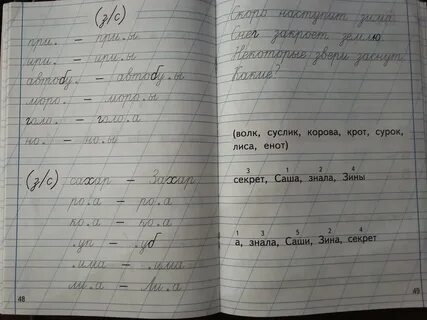 (з/с)
при. – при.ы
ири. – ири.ы
автобу. – автобу.ы
моро. – моро.ы
голо. – голо.а
но. – но.ы
(з/с) сахар – Захар
ро.а – ро.а
ко.а – ко.а
.уп – .уб
.има – .има
ли.а – Ли.а
48
Скоро наступит зима.
Снег закроет землю.
Некоторые звери заснут.
Какие?
(волк, суслик, корова, крот, сурок,
лиса, енот)
3 1 2 4
секрет, Саша, знала, Зины
1 3 5 2 4
а, знала, Саши, Зина, секрет
49